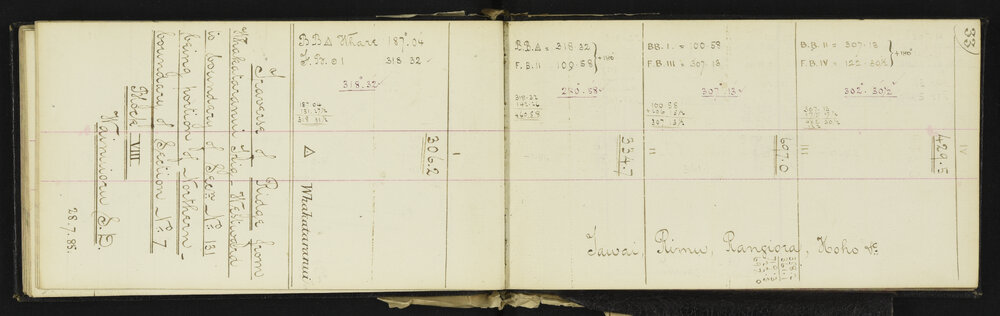 33
Traverse of Ridge from
Whakataramui Trig - Westward
is boundary of Secn No 131
being portion of Northern
boundary of Section No 7
Block VIII
Waimuioru S.D.
28.7.88.
B B △ Whare 187° 04
F. B. ⊙ 1 318 32
318° 32
187.04
131.27½
318 31½
△ Whakataramui
306.2
I
B.B. △ = 318.32
F.B. II 109.58
280° 58
318.32
460.58
334.7
II
BB. I. = 100.58
F.B. III = 307.13
307° 13
100.58
307 13½
697.0
III
B.B. II = 307.13
F.B. IV = 122.30½
302° 30½
307.13
429.5
IV
Tawai, Rimu, Rangiora, Hoho &c.